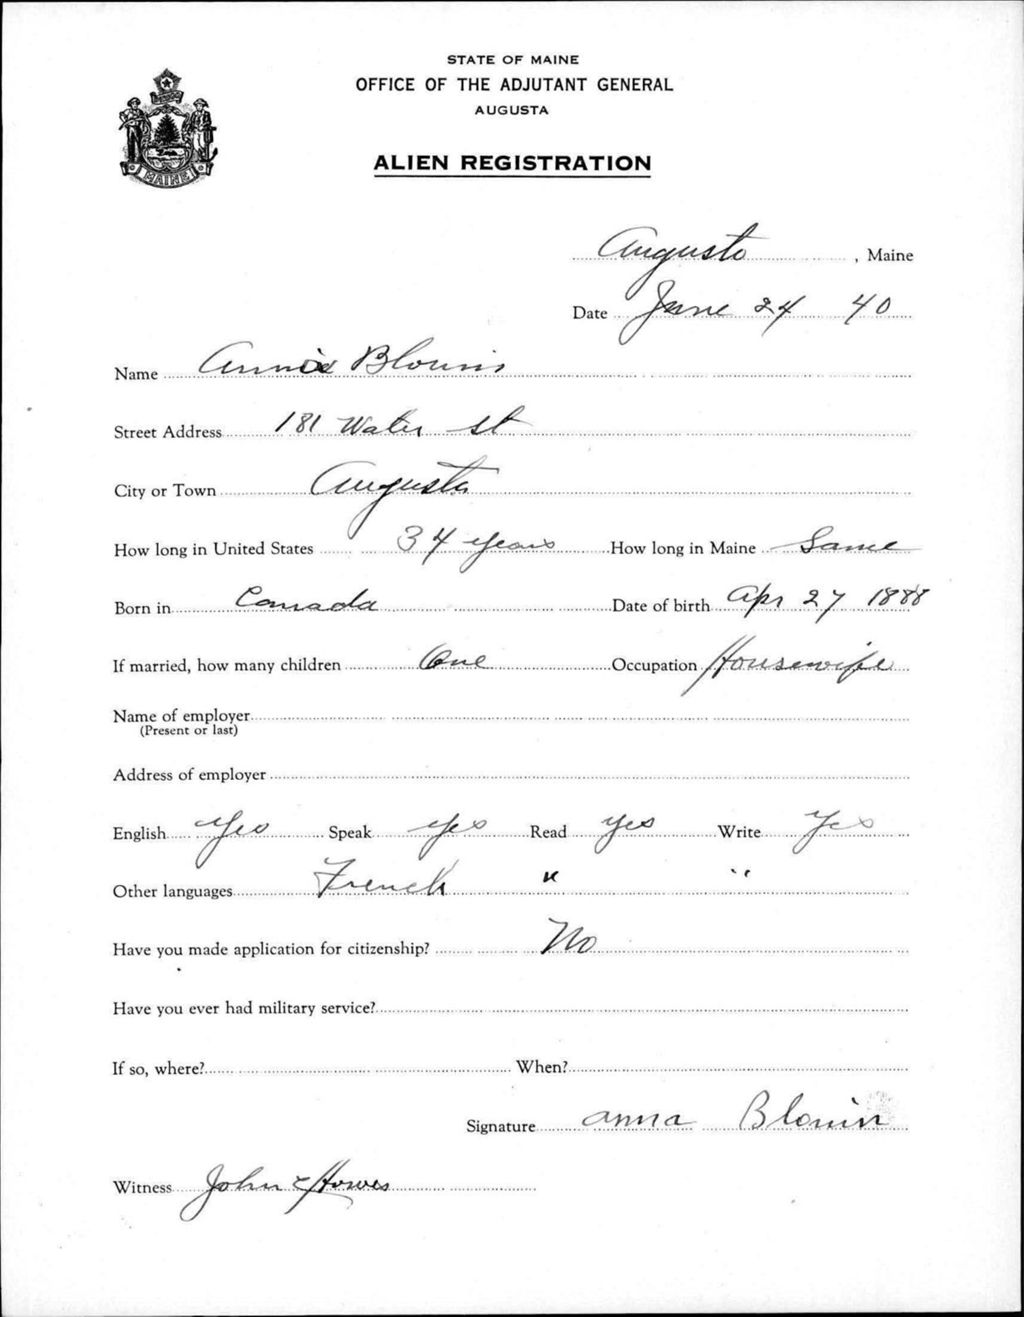 STATE OF MAINE
OFFICE OF THE ADJUTANT GENERAL
AUGUSTA
MAINE
ALIEN REGISTRATION
Augusta, Maine
Date June 24 40
Name Annie Blouin
Street Address 181 Water St
City or Town Augusta
How long in United States 34 years How long in Maine Same
Born in Canada Date of birth Apr 27 1888
If married, how many children One Occupation Housewife
Name of employer
(Present or last)
Address of employer
English Yes Speak yes Read yes Write Yes
Other languages French " "
Have you made application for citizenship? No
Have you ever had military service?
If so, where? When?
Signature anna Blouin
Witness John E Howes